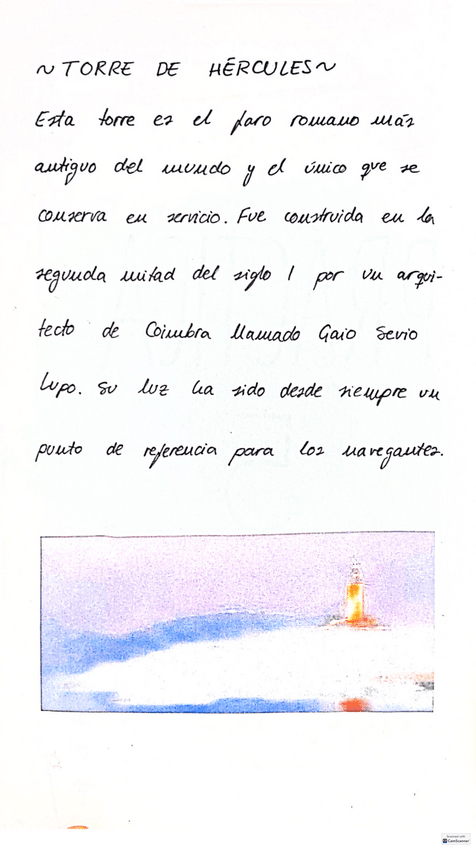 ~TORRE DE HÉRCULES~
Esta torre es el faro romano más
antiguo del mundo y el único que se
conserva en servicio. Fue construida en la
segunda mitad del siglo I por un arqui-
tecto de Coimbra llamado Gaio Sevio
Lupo. Su luz ha sido desde siempre un
punto de referencia para los navegantes.
Scanned with
CamScanner